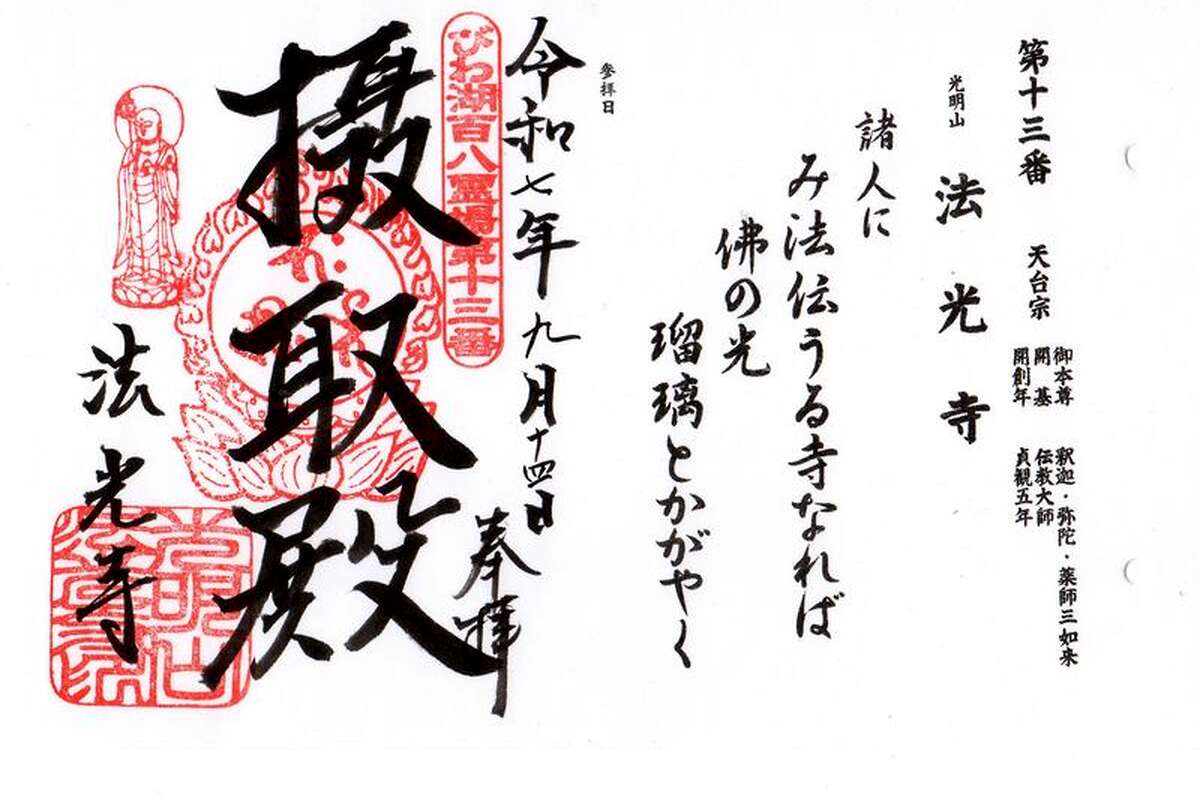 第十三番 天台宗
御本尊 釈迦・弥陀・薬師三如来
開基 伝教大師
開創年 貞観五年
光明山 法光寺
諸人に
み法伝うる寺なれば
佛の光
瑠璃とかがやく
参拝日
令和七年九月十四日
奉拝
びわ湖百八霊場第十三番
摂取殿
法光寺